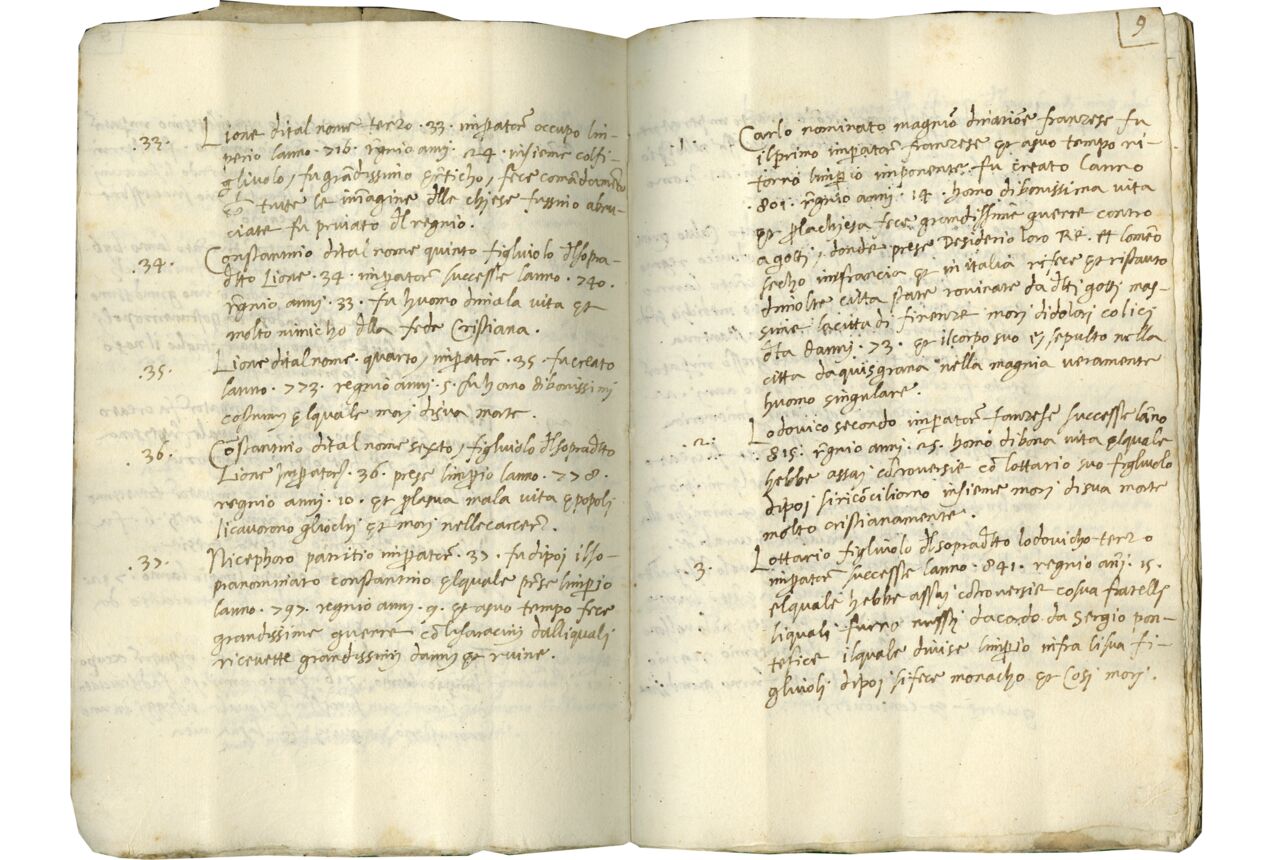 .33. Lione dital nome terzo .33. impator̃ occupo lin-
perio lanno .716. regnio anni .24. insieme colfi-
gliuolo, fu grãdissimo eretticho, fece comãdamẽto
che tutte le immagine dlle chiese fussino abru-
ciate fu priuato dl regnio.
.34. Constantino dital nome quinto figluiolo dlsopra-
dtto Lione .34. impator̃ successe lanno .740.
r̃gnio anni .33. fu huomo dmala vita et
molto inimicho dlla fede Cristiana.
.35. Lione dital nome quarto, impator̃ .35. fu creato
lanno .773. regnio anni .5. fu homo dibonissimi
costumi elquale mori disua morte.
.36. Cõstantino dital nome sexto, figluiolo dlsopradtto
Lione impator̃ .36. prese limperio lanno .778.
regnio anni .10. et p lasua mala vita e popoli
licauorono gliochi et mori nellecarcer̃.
.37. Nicephoro patritio impator̃ .37. fu dipoi ilso-
pranominato constantino elquale prese limperio
lanno .797. regnio anni .9. et asuo tempo fece
grandissime guerre cõ li saracini dalliquali
riceuette grandissimi danni et ruine.
9
.1. Carlo nominato magnio dinatione franzese fu
ilprimo impator̃ franzese et asuo tempo ri-
torno limperio imponente. fu creato lanno
.801. r̃gnio anni .14. homo dibonissima vita
et p lachiesa fece grandissime guerre contro
agotti, donde prese Desiderio loro Re. et lomẽo
secho infrancia et in italia refece et ristauro
dimolte citta state rouinate da dtti gotti mas-
sime lacitta di firenze mori didolori colici
dtta danni .73. et ilcorpo suo e sepulto nella
citta daquisgrana nella magnia ueramente
huomo singulare.
.2. Lodouico secondo impator̃ franzese successe lãno
.815. r̃gnio anni .25. homo dibona vita elquale
hebbe assai cõtrouersie cõ lottario suo figluolo
dipoi siricõciliorno insieme mori disua morte
molto cristianamente.
.3. Lottario figluiolo dlsopradtto lodouicho terzo
impator̃ successe lanno .841. regnio añi .15.
elquale hebbe assai cõtrouersie cosua fratelli
liquali furno messi dacordo da Sergio pon-
tefice ilquale diuise limperio infra lisua fi-
gluioli dipoi sifece monacho et cosi mori.